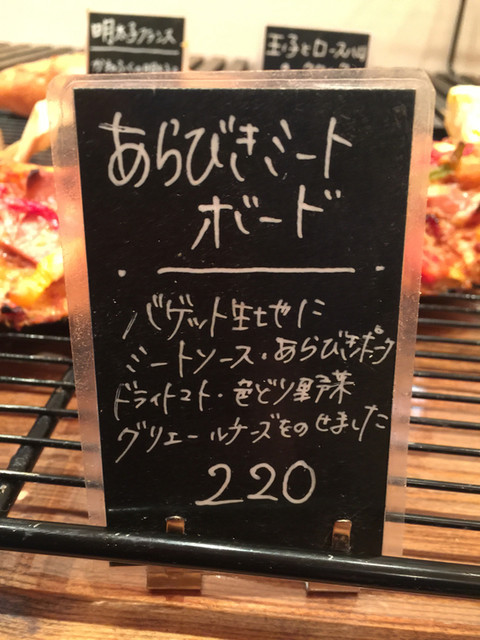 明太子フランス
玉子とロースハム
あらびきミート
ボード
バゲット生地に
ミートソース・あらびきポーク
ドライトマト・色どり野菜
グリエールチーズをのせました
220